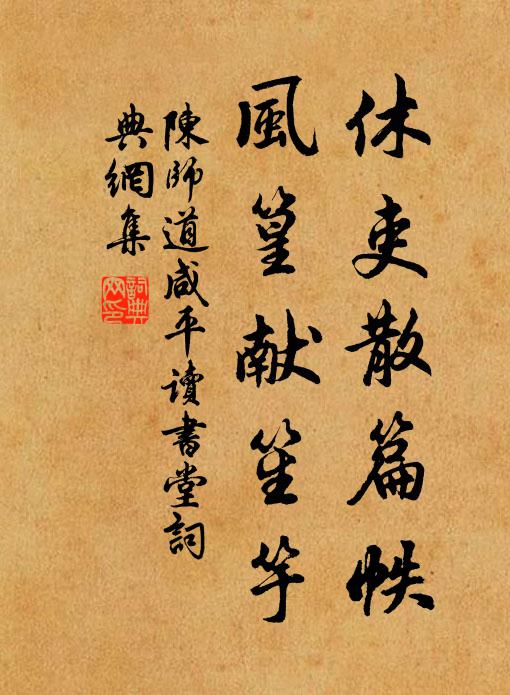 休吏散篇帙
風篁献笙竽
陳師道咸平讀書堂詞
典網集
詞典
网印